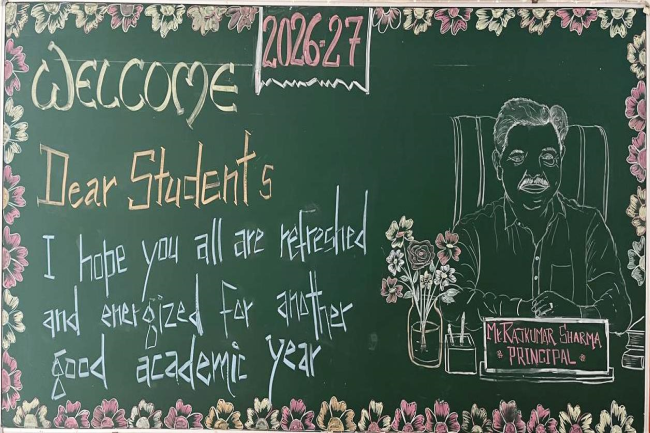 WELCOME
2026-27
Dear Students
I hope you all are refreshed
and energized for another
good academic year
Mr. RAJKUMAR SHARMA
* PRINCIPAL *